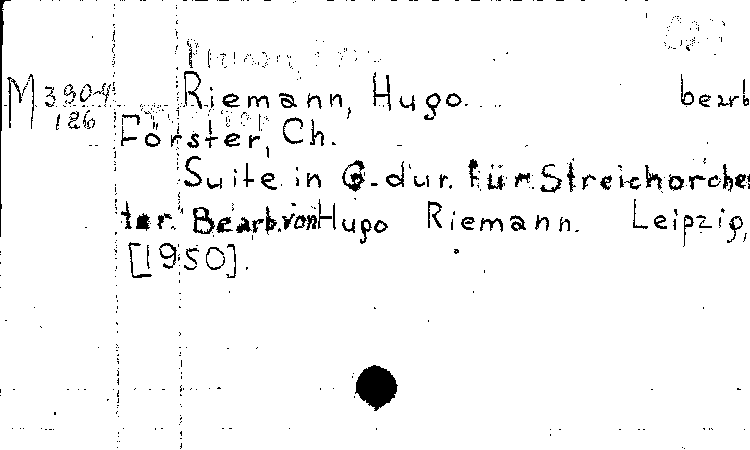 M 3904
126
Riemann, Hugo. bearb
Förster, Ch.
Suite in G-dur. für Streichorches
ter. Bearb. von Hugo Riemann. Leipzig,
[1950].